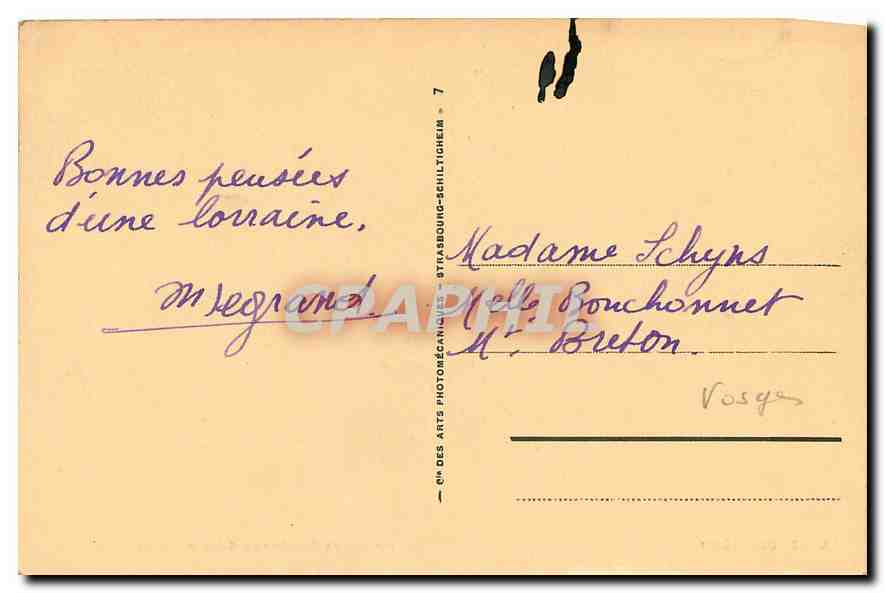 Bonnes pensées
d'une lorraine.
M Legrand
Cie DES ARTS PHOTOMÉCANIQUES – STRASBOURG-SCHILTIGHEIM 7
Madame Schyns
Melle Bouchonnet
Mr. Breton.
Vosges
CPAPHIL